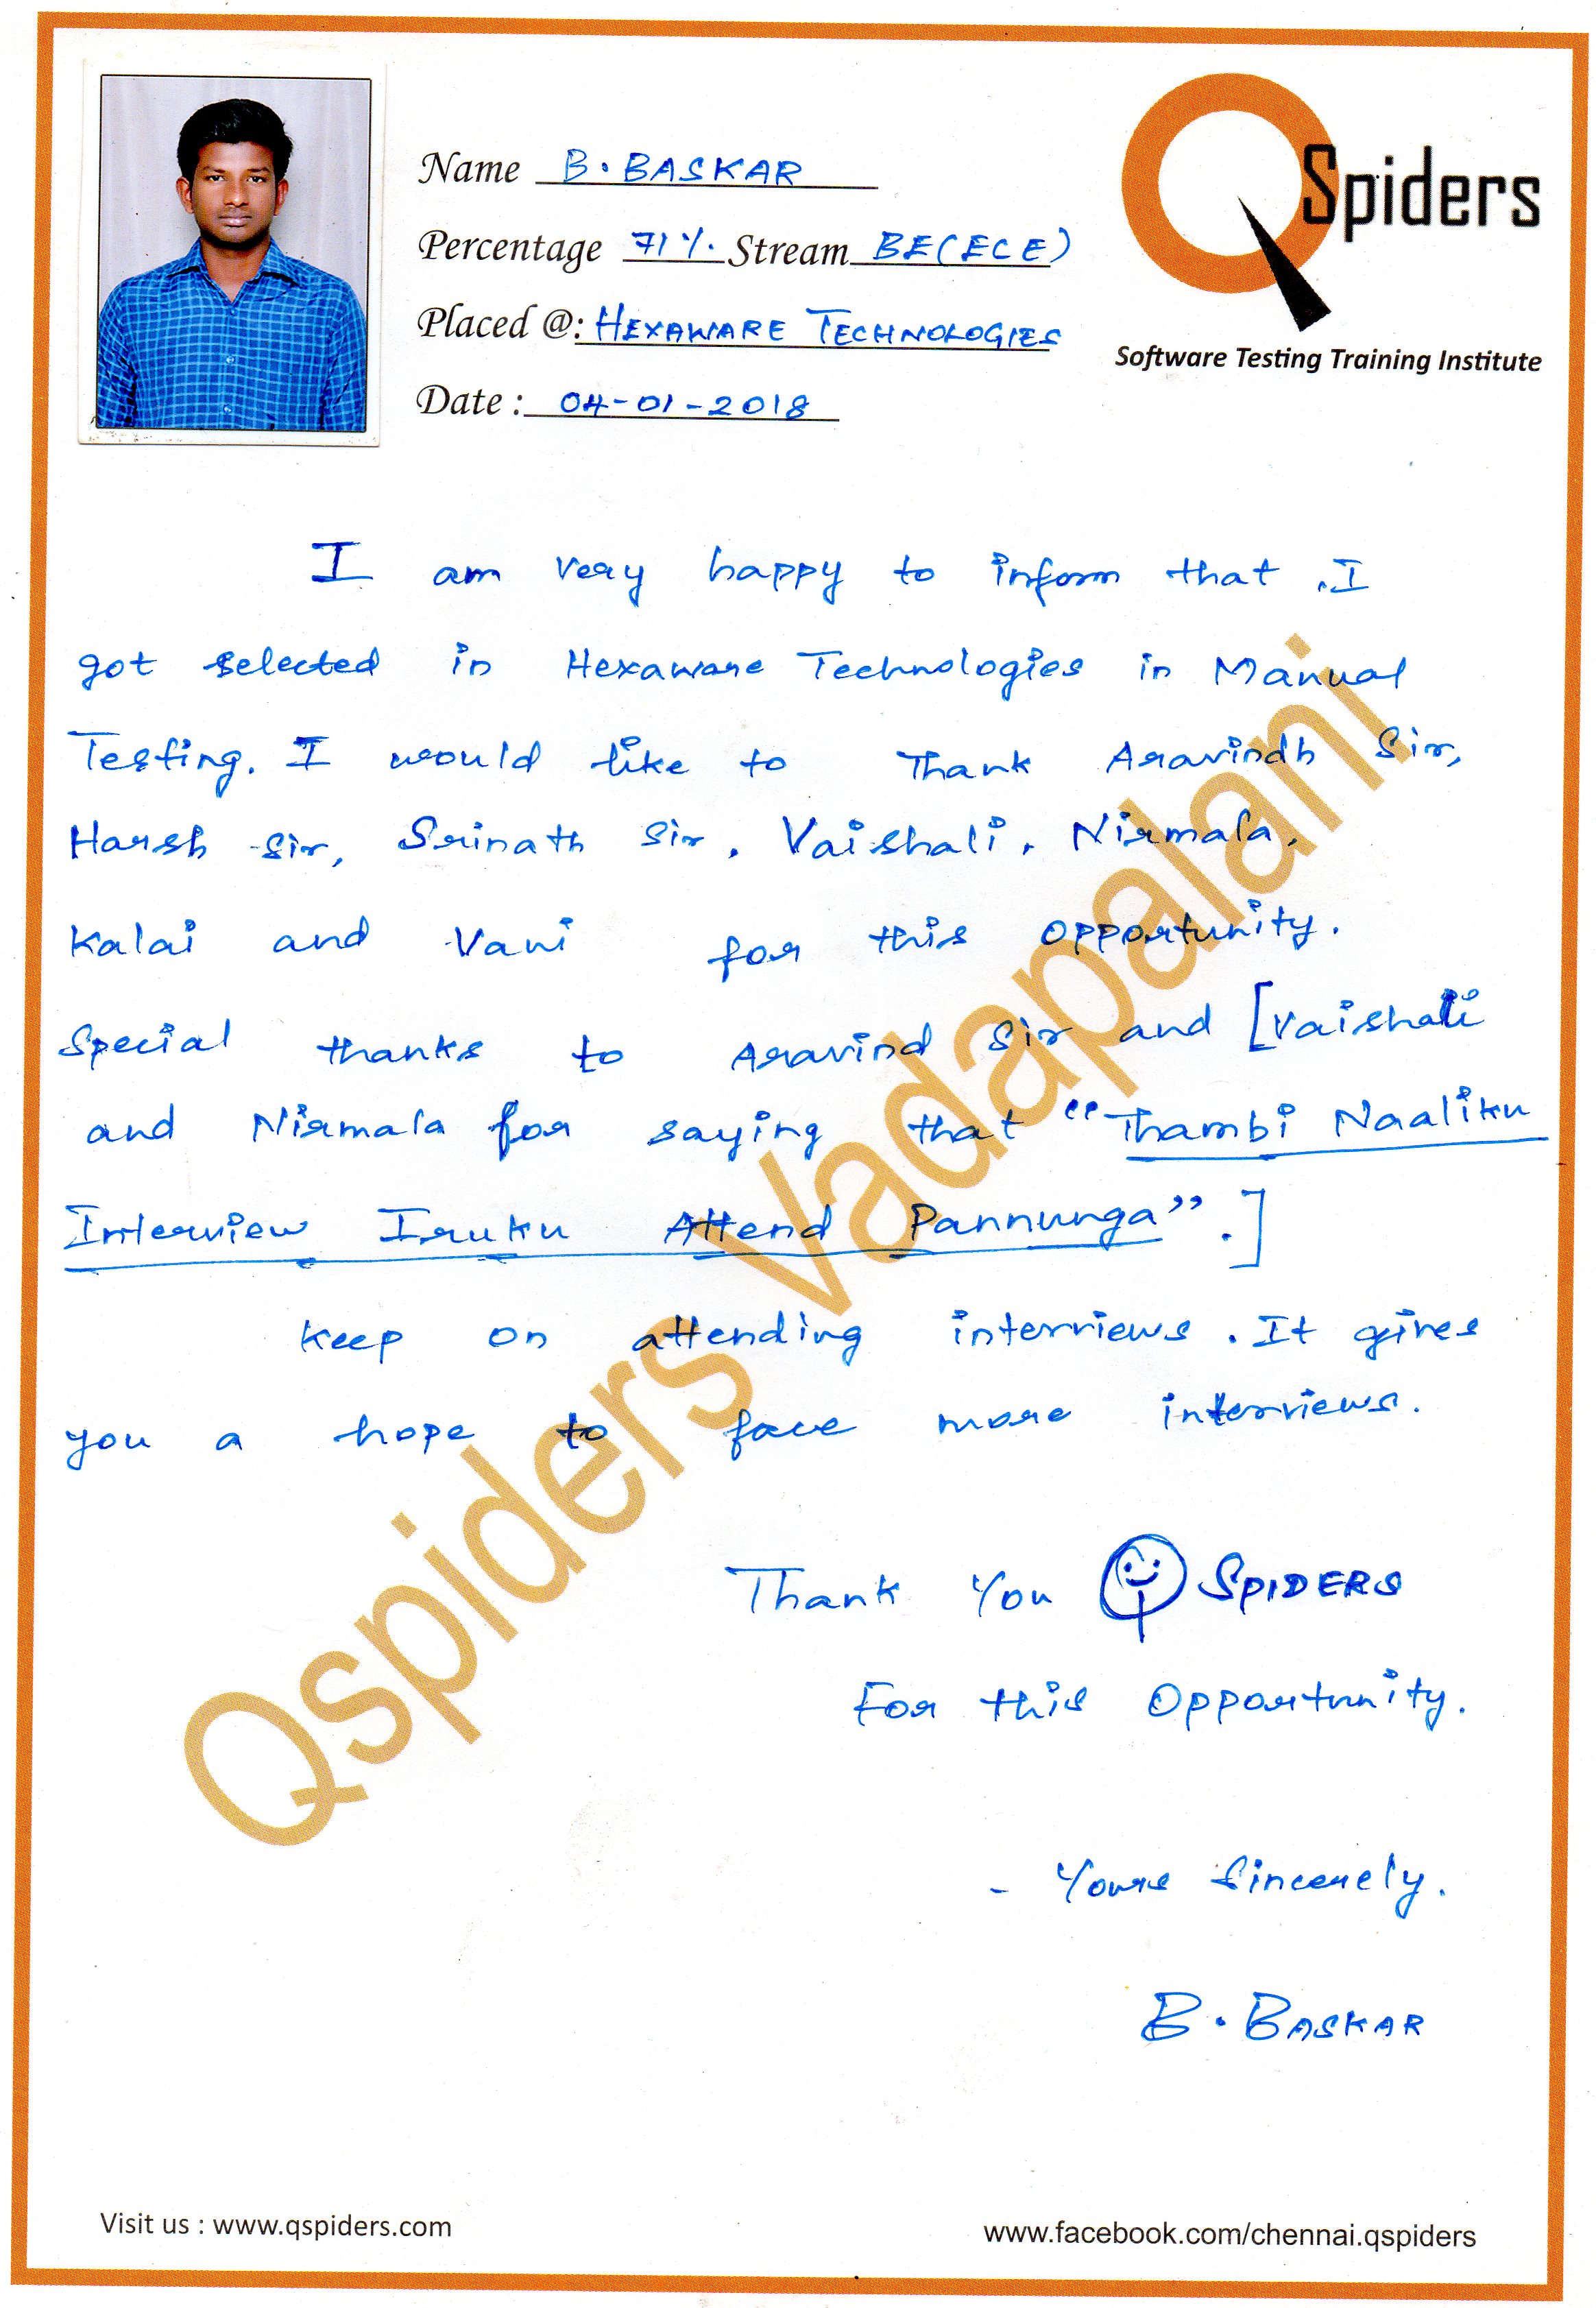 Name B. BASKAR
QSpiders
Percentage 71% Stream BE(ECE)
Placed @: HEXAWARE TECHNOLOGIES
Software Testing Training Institute
Date : 04-01-2018
I am very happy to inform that . I
got selected in Hexaware Technologies in Manual
Testing. I would like to Thank Aravindh Sir,
Harsh Sir, Srinath Sir, Vaishali, Nirmala,
Kalai and Vani for this opportunity.
Special thanks to Aravind Sir and [Vaishali
and Nirmala for saying that "Thambi Naaliku
Interview Iruku Attend Pannunga".]
Keep on attending interviews. It gives
you a hope to face more interviews.
Thank You QSPIDERS
For this Opportunity.
- Yours Sincerely.
B. BASKAR
Qspiders Vadapalani
Visit us : www.qspiders.com
www.facebook.com/chennai.qspiders